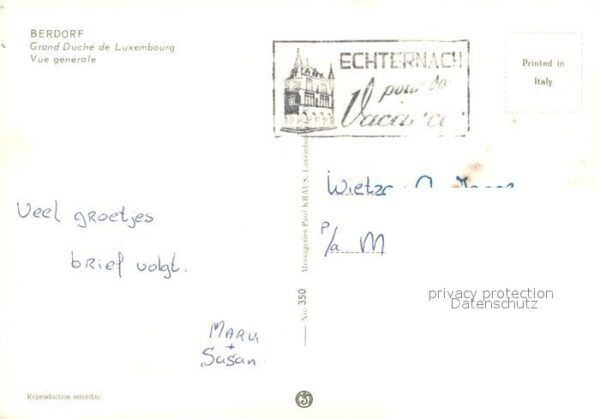 BERDORF
Grand Duché de Luxembourg
Vue generale
ECHTERNACH
pour la
Vacances
Printed in
Italy
Veel groetjes
brief volgt.
Maru
+
Susan.
Wietze
P/a M
privacy protection
Datenschutz
No. 350 Messageries Paul KRAUS, Luxembourg
Reproduction interdite